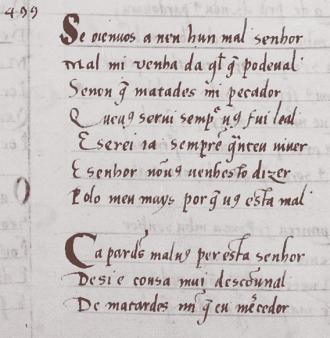 499
Se oienuos a nen hun mal senhor
Mal mi venha da ql̃ q̃ podeual
Senon q̃ matades mi pecador
Q ueu9 serui semp̃ u9 fui leal
E serei ia sempre q̃nteu uiuer
E senhor nõu9 uenhesto dizer
Polo meu muys por q̃ u9 esta mal
Ca pards̃ malu9 per esta senhor
Desi e cousa mui
De matardes mi q̃ eu mẽcedor